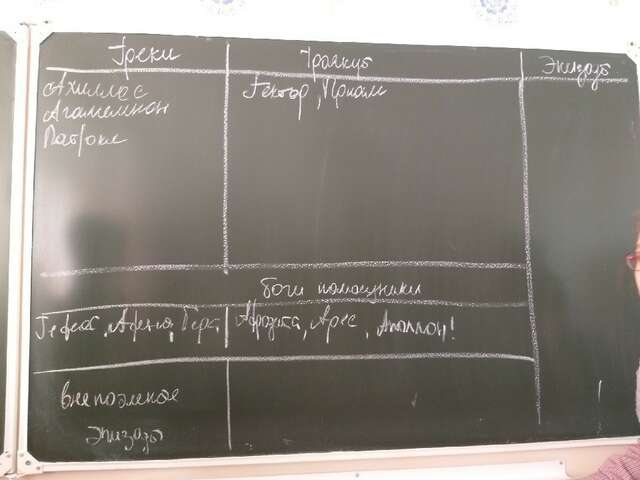 Греки Троянцы Эпизоды
Ахиллес Гектор, Приам
Агамемнон
Патрокл
боги помощники
Гефест, Афина, Гера Афродита, Арес, Аполлон!
вне поэмные
эпизоды